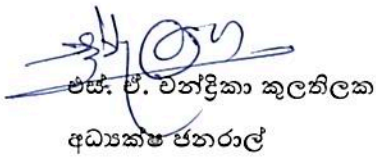 එස්. ඒ. චන්ද්‍රිකා කුලතිලක
අධ්‍යක්ෂ ජනරාල්